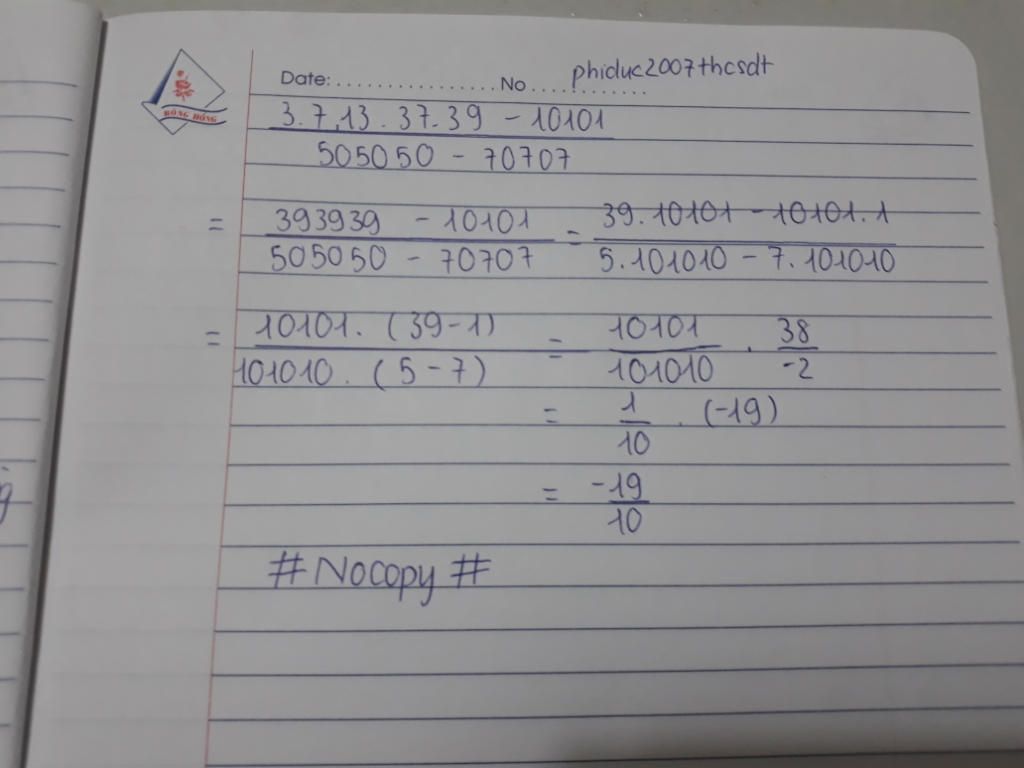 Date:................. No............ phiduc2007thcsdt
HỒNG HỒNG
3.7.13.37.39 - 10101
505050 - 70707
= 393939 - 10101 = 39.10101 - 10101.1
505050 - 70707 5.101010 - 7.101010
= 10101.(39-1) = 10101 . 38
101010.(5-7) 101010 -2
= 1 . (-19)
10
= -19
10
# Nocopy #